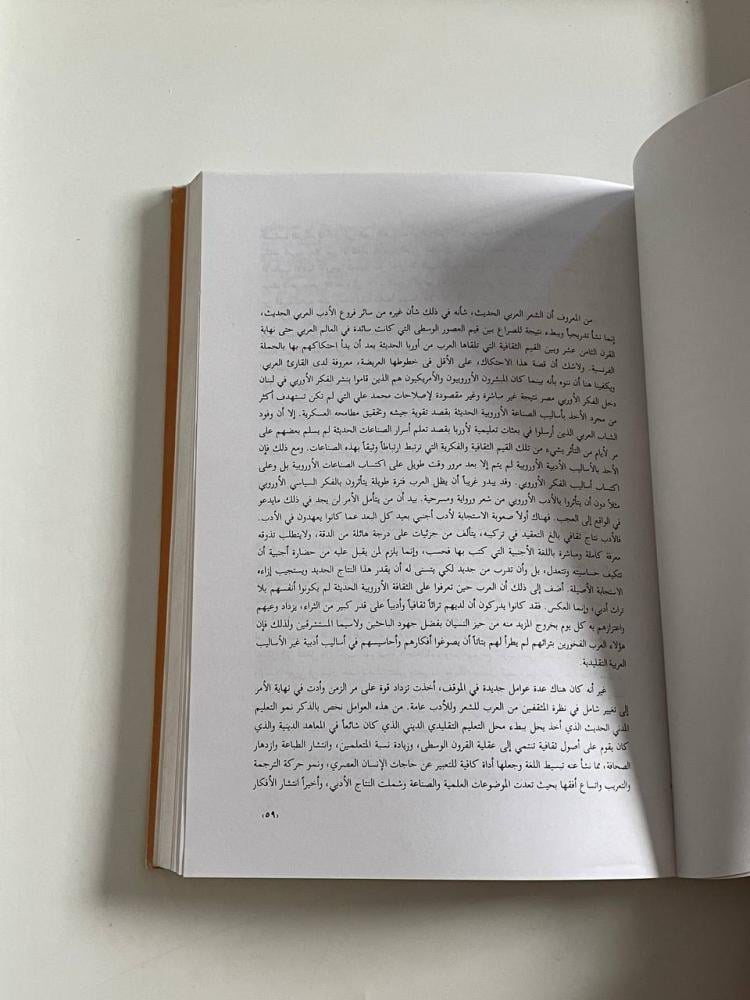 من المعروف أن الشعر العربي الحديث، شأنه في ذلك شأن غيره من سائر فروع الأدب العربي الحديث،
إنما نشأ تدريجياً وببطء نتيجة للصراع بين قيم العصور الوسطى التي كانت سائدة في العالم العربي حتى نهاية
القرن الثامن عشر وبين القيم الثقافية التي تلقاها العرب من أوربا الحديثة بعد أن بدأ احتكاكهم بها بالحملة
الفرنسية. ولاشك أن قصة هذا الاحتكاك، على الأقل في خطوطها العريضة، معروفة لدى القارئ العربي.
ويكفينا هنا أن ننوه بأنه بينما كان المبشرون الأوروبيون والأمريكيون هم الذين قاموا بنشر الفكر الأوربي في لبنان
دخل الفكر الأوربي مصر نتيجة غير مباشرة وغير مقصودة لإصلاحات محمد علي التي لم تكن تستهدف أكثر
من مجرد الأخذ بأساليب الصناعة الأوروبية الحديثة بقصد تقوية جيشه وتحقيق مطامحه العسكرية. إلا أن وفود
الشباب العربي الذين أرسلوا في بعثات تعليمية لأوربا بقصد تعلم أسرار الصناعات الحديثة لم يسلم بعضهم على
مر الأيام من التأثر بشيء من تلك القيم الثقافية والفكرية التي ترتبط ارتباطاً وثيقاً بهذه الصناعات. ومع ذلك فإن
الأخذ بالأساليب الأدبية الأوروبية لم يتم إلا بعد مرور وقت طويل على اكتساب الصناعات الأوروبية بل وعلى
اكتساب أساليب الفكر الأوروبي. وقد يبدو غريباً أن يظل العرب فترة طويلة يتأثرون بالفكر السياسي الأوروبي
مثلاً دون أن يتأثروا بالأدب الأوروبي من شعر ورواية ومسرحية. بيد أن من يتأمل الأمر لن يجد في ذلك مايدعو
في الواقع إلى العجب. فهناك أولاً صعوبة الاستجابة لأدب أجنبي بعيد كل البعد عما كانوا يعهدون في الأدب.
فالأدب نتاج ثقافي بالغ التعقيد في تركيبه، يتألف من جزئيات على درجة هائلة من الدقة، ولايتطلب تذوقه
معرفة كاملة ومباشرة باللغة الأجنبية التي كتب بها فحسب، وإنما يلزم لمن يقبل عليه من حضارة أجنبية أن
تتكيف حساسيته وتتعدل، بل وأن تدرب من جديد لكي يتسنى له أن يقدر هذا النتاج الجديد ويستجيب إزاءه
الاستجابة الأصيلة. أضف إلى ذلك أن العرب حين تعرفوا على الثقافة الأوروبية الحديثة لم يكونوا أنفسهم بلا
تراث أدبي، وإنما العكس. فقد كانوا يدركون أن لديهم تراثاً ثقافياً وأدبياً على قدر كبير من الثراء، يزداد وعيهم
واعتزازهم به كل يوم بخروج المزيد منه من حيز النسيان بفضل جهود الباحثين ولاسيما المستشرقين ولذلك فإن
هؤلاء العرب الفخورين بتراثهم لم يطرأ لهم بتاتاً أن يصوغوا أفكارهم وأحاسيسهم في أساليب أدبية غير الأساليب
العربية التقليدية.
غير أنه كان هناك عدة عوامل جديدة في الموقف، أخذت تزداد قوة على مر الزمن وأدت في نهاية الأمر
إلى تغيير شامل في نظرة المثقفين من العرب للشعر وللأدب عامة. من هذه العوامل نخص بالذكر نمو التعليم
المدني الحديث الذي أخذ يحل ببطء محل التعليم التقليدي الديني الذي كان شائعاً في المعاهد الدينية والذي
كان يقوم على أصول ثقافية تنتمي إلى عقلية القرون الوسطى، وزيادة نسبة المتعلمين، وانتشار الطباعة وازدهار
الصحافة، مما نشأ عنه تبسيط اللغة وجعلها أداة كافية للتعبير عن حاجات الإنسان العصري، ونمو حركة الترجمة
والتعريب واتساع أفقها بحيث تعدت الموضوعات العلمية والصناعة وشملت النتاج الأدبي، وأخيراً انتشار الأفكار
(٥٩)